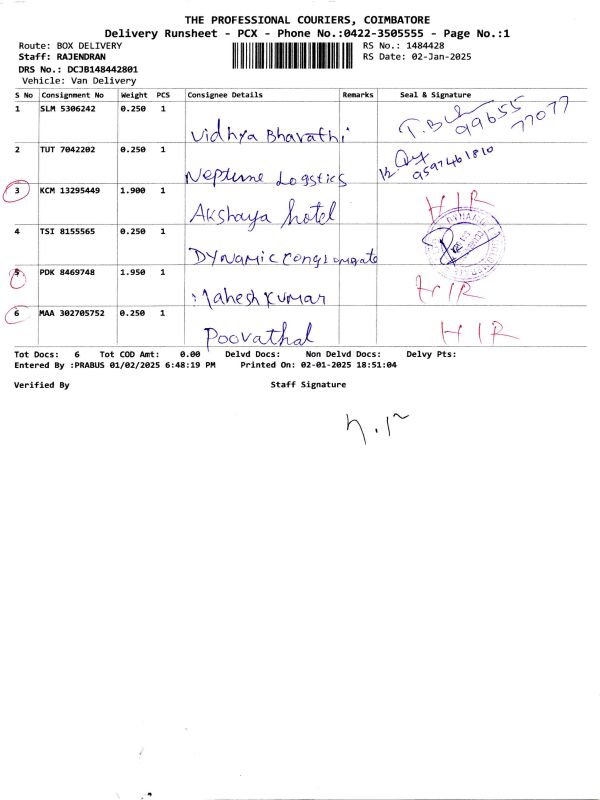 THE PROFESSIONAL COURIERS, COIMBATORE
Delivery Runsheet - PCX - Phone No.:0422-3505555 - Page No.:1
Route: BOX DELIVERY RS No.: 1484428
Staff: RAJENDRAN RS Date: 02-Jan-2025
DRS No.: DCJB148442801
Vehicle: Van Delivery
S No Consignment No Weight PCS Consignee Details Remarks Seal & Signature
1 SLM 5306242 0.250 1 Vidhya Bharathi 99655 77077
2 TUT 7042202 0.250 1 Neptune Logstics 9597461810
3 KCM 13295449 1.900 1 Akshaya hotel HIR
4 TSI 8155565 0.250 1 Dynamic Conglomerate DYNAMIC
5 PDK 8469748 1.950 1 Mahesh Kumar HIR
6 MAA 302705752 0.250 1 Poovathal HIR
Tot Docs: 6 Tot COD Amt: 0.00 Delvd Docs: Non Delvd Docs: Delvy Pts:
Entered By :PRABUS 01/02/2025 6:48:19 PM Printed On: 02-01-2025 18:51:04
Verified By Staff Signature